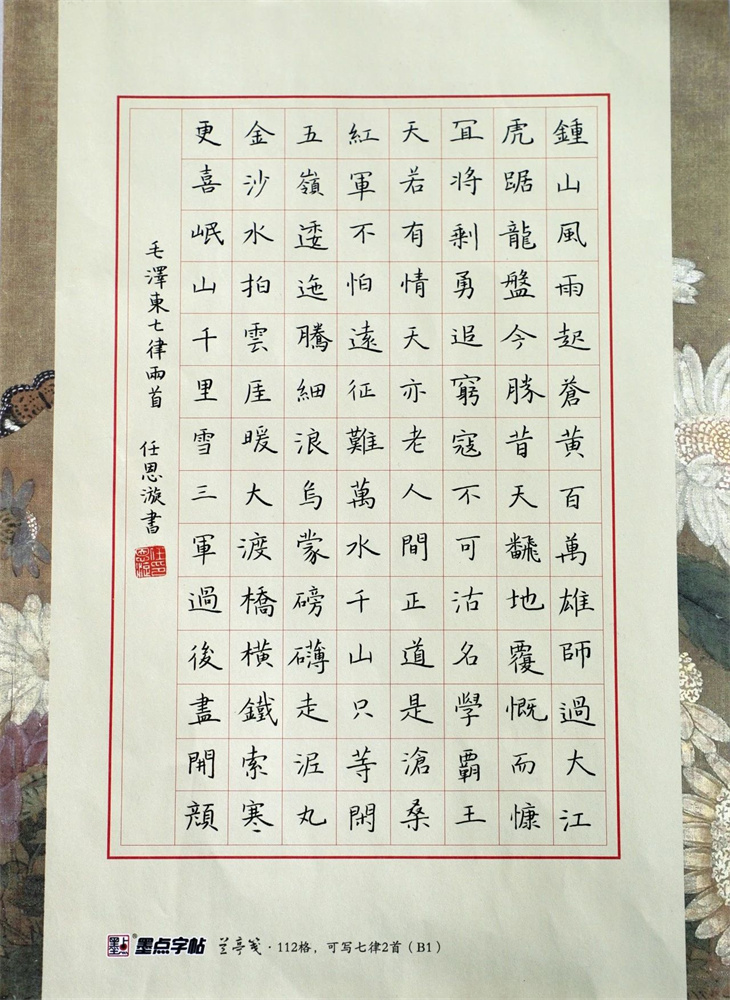 鍾山風雨起蒼黃百萬雄師過大江
虎踞龍盤今勝昔天飜地覆慨而慷
冝將剩勇追窮寇不可沽名學霸王
天若有情天亦老人間正道是滄桑
紅軍不怕遠征難萬水千山只等閑
五嶺逶迤騰細浪烏蒙磅礴走泥丸
金沙水拍雲厓暖大渡橋橫鐵索寒
更喜岷山千里雪三軍過後盡開顏
毛澤東七律兩首 任思漩書
墨点字帖 兰亭笺·112格，可写七律2首（B1）